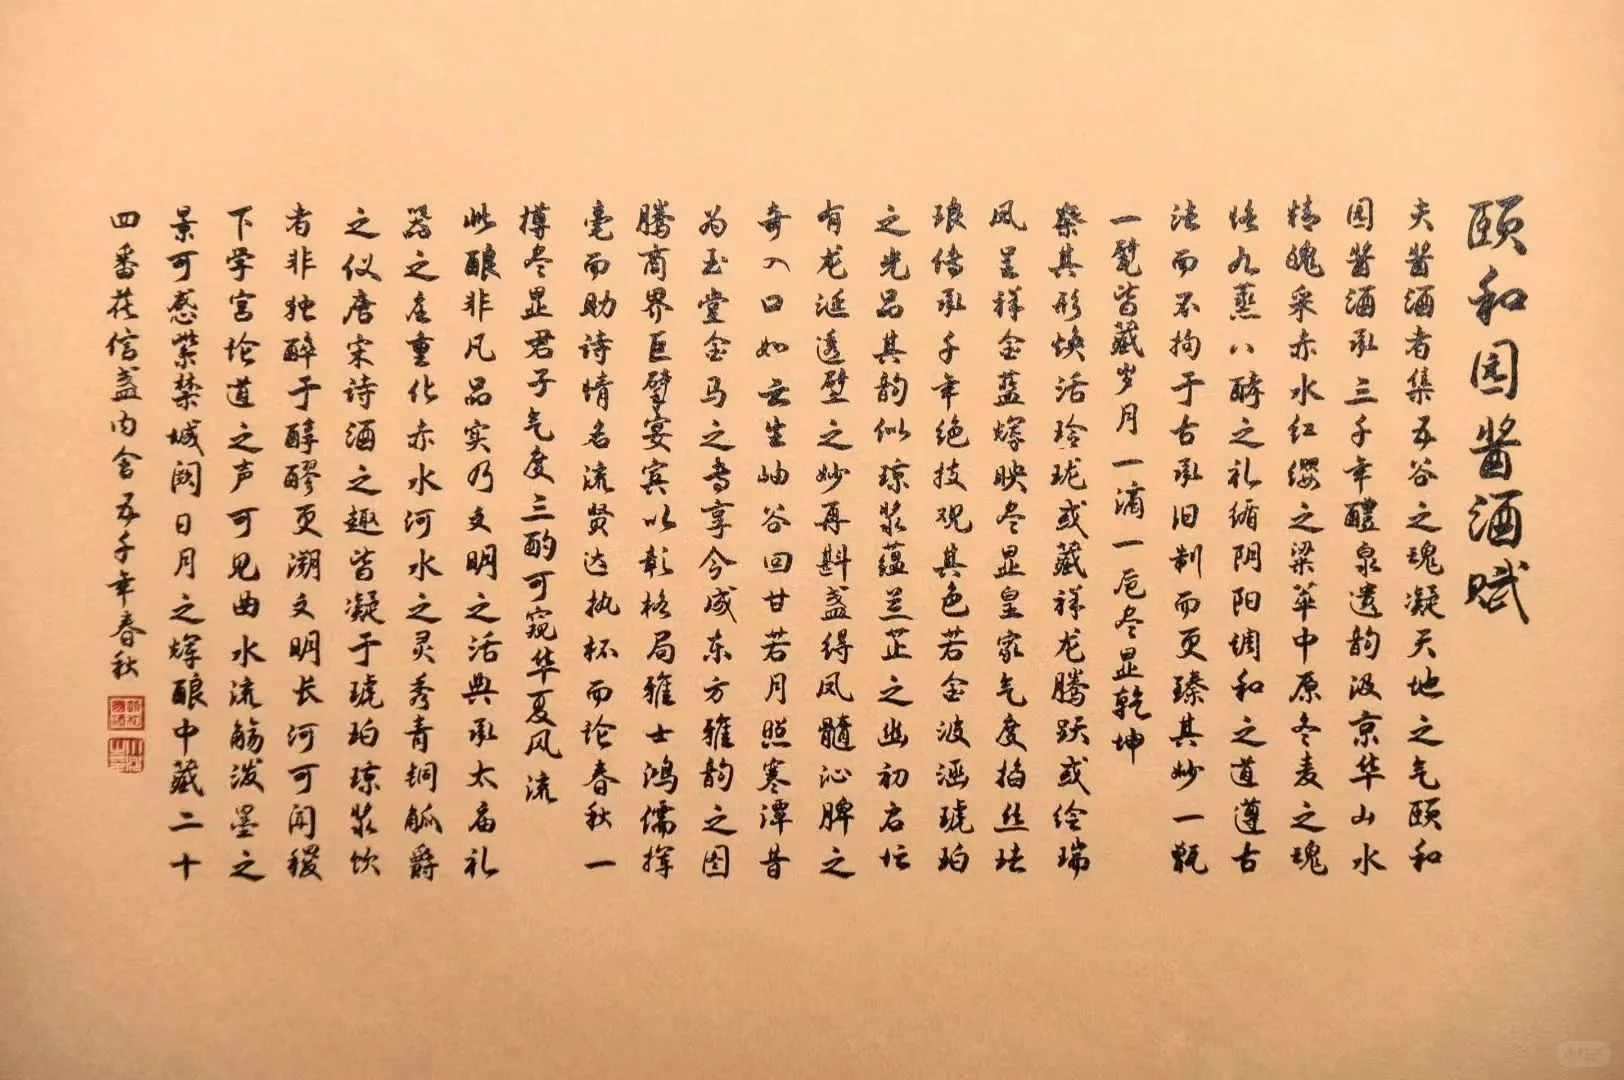 颐和园酱酒赋
夫酱酒者集五谷之魂凝天地之气颐和
园酱酒承三千年醴泉遗韵汲京华山水
精魄采赤水红缨之粱萃中原冬麦之魂
恪九蒸八酵之礼循阴阳调和之道遵古
法而不拘于古承旧制而更臻其妙一甑
一甓皆藏岁月一滴一卮尽显乾坤
察其形焕活玲珑或藏祥龙腾跃或绘瑞
凤呈祥金蓝辉映尽显皇家气度掐丝珐
琅传承千年绝技观其色若金波涵琥珀
之光品其韵似琼浆蕴兰芷之幽初启坛
有龙涎透壁之妙再斟盏得凤髓沁脾之
奇入口如云生岫谷回甘若月照寒潭昔
为玉堂金马之专享今成东方雅韵之图
腾商界巨擘宴宾以彰格局雅士鸿儒挥
毫而助诗情名流贤达执杯而论春秋一
樽尽显君子气度三酌可窥华夏风流
此酿非凡品实乃文明之活典承太庙礼
器之庄重化赤水河水之灵秀青铜觚爵
之仪唐宋诗酒之趣皆凝于琥珀琼浆饮
者非独醉于醇醪更溯文明长河可闻稷
下学宫论道之声可见曲水流觞泼墨之
景可感紫禁城阙日月之辉酿中藏二十
四番花信盏内含五千年春秋